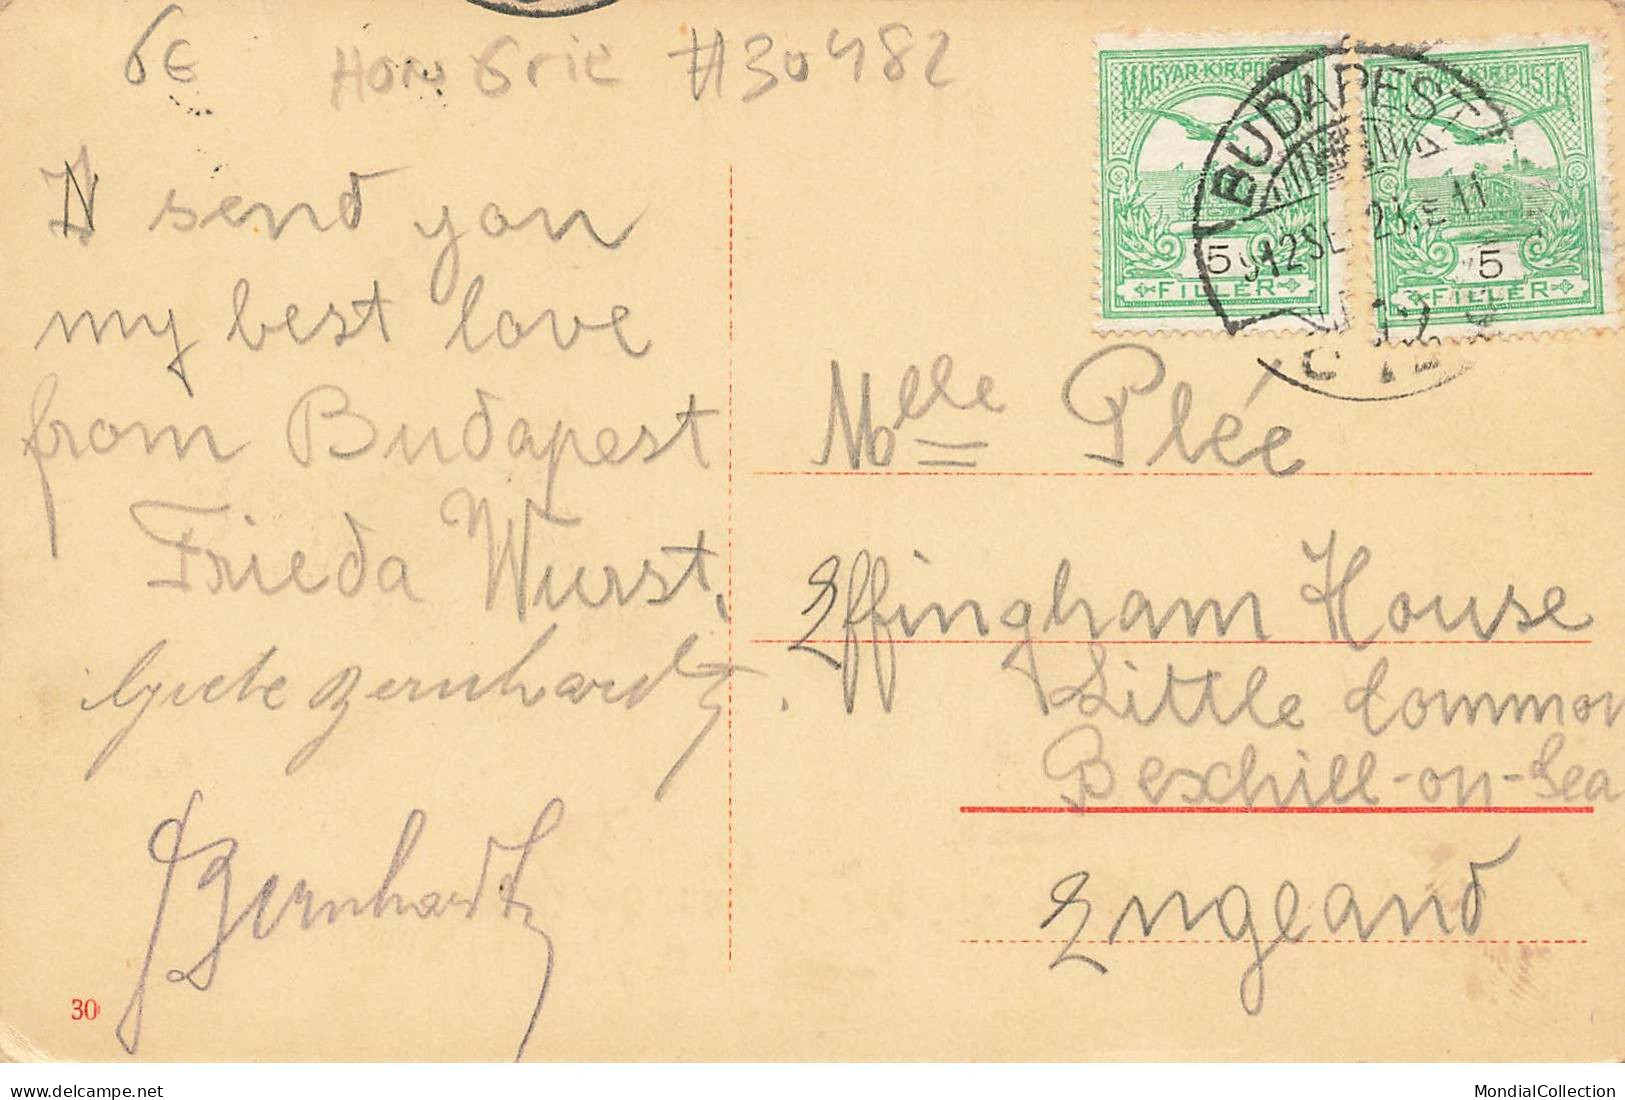 6€ HONGrie #30482
MAGYAR·KIR·POSTA
MAGYAR·KIR·POSTA
BUDAPEST
912 SE 23
5
FILLÉR
5
FILLÉR
I send you
my best love
from Budapest
Frieda Wurst.
Grete Bernhardt
Bernhardt
30
Mlle Plée
Effingham House
Little Common
Bexhill-on-Sea
England
delcampe.net
MondialCollection